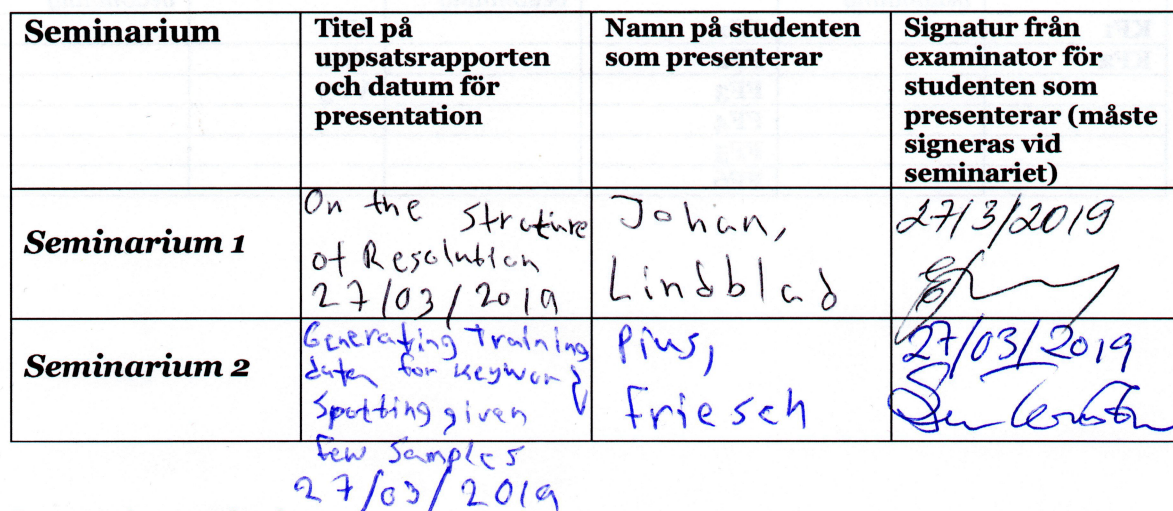 Seminarium
Titel på
uppsatsrapporten
och datum för
presentation
Namn på studenten
som presenterar
Signatur från
examinator för
studenten som
presenterar (måste
signeras vid
seminariet)
Seminarium 1
On the Struture
of Resolution
27/03/2019
Johan,
Lindblad
27/3/2019
Seminarium 2
Generating Training
data for keyword
Spotting given
few samples
27/03/2019
Pius,
Friesch
27/03/2019